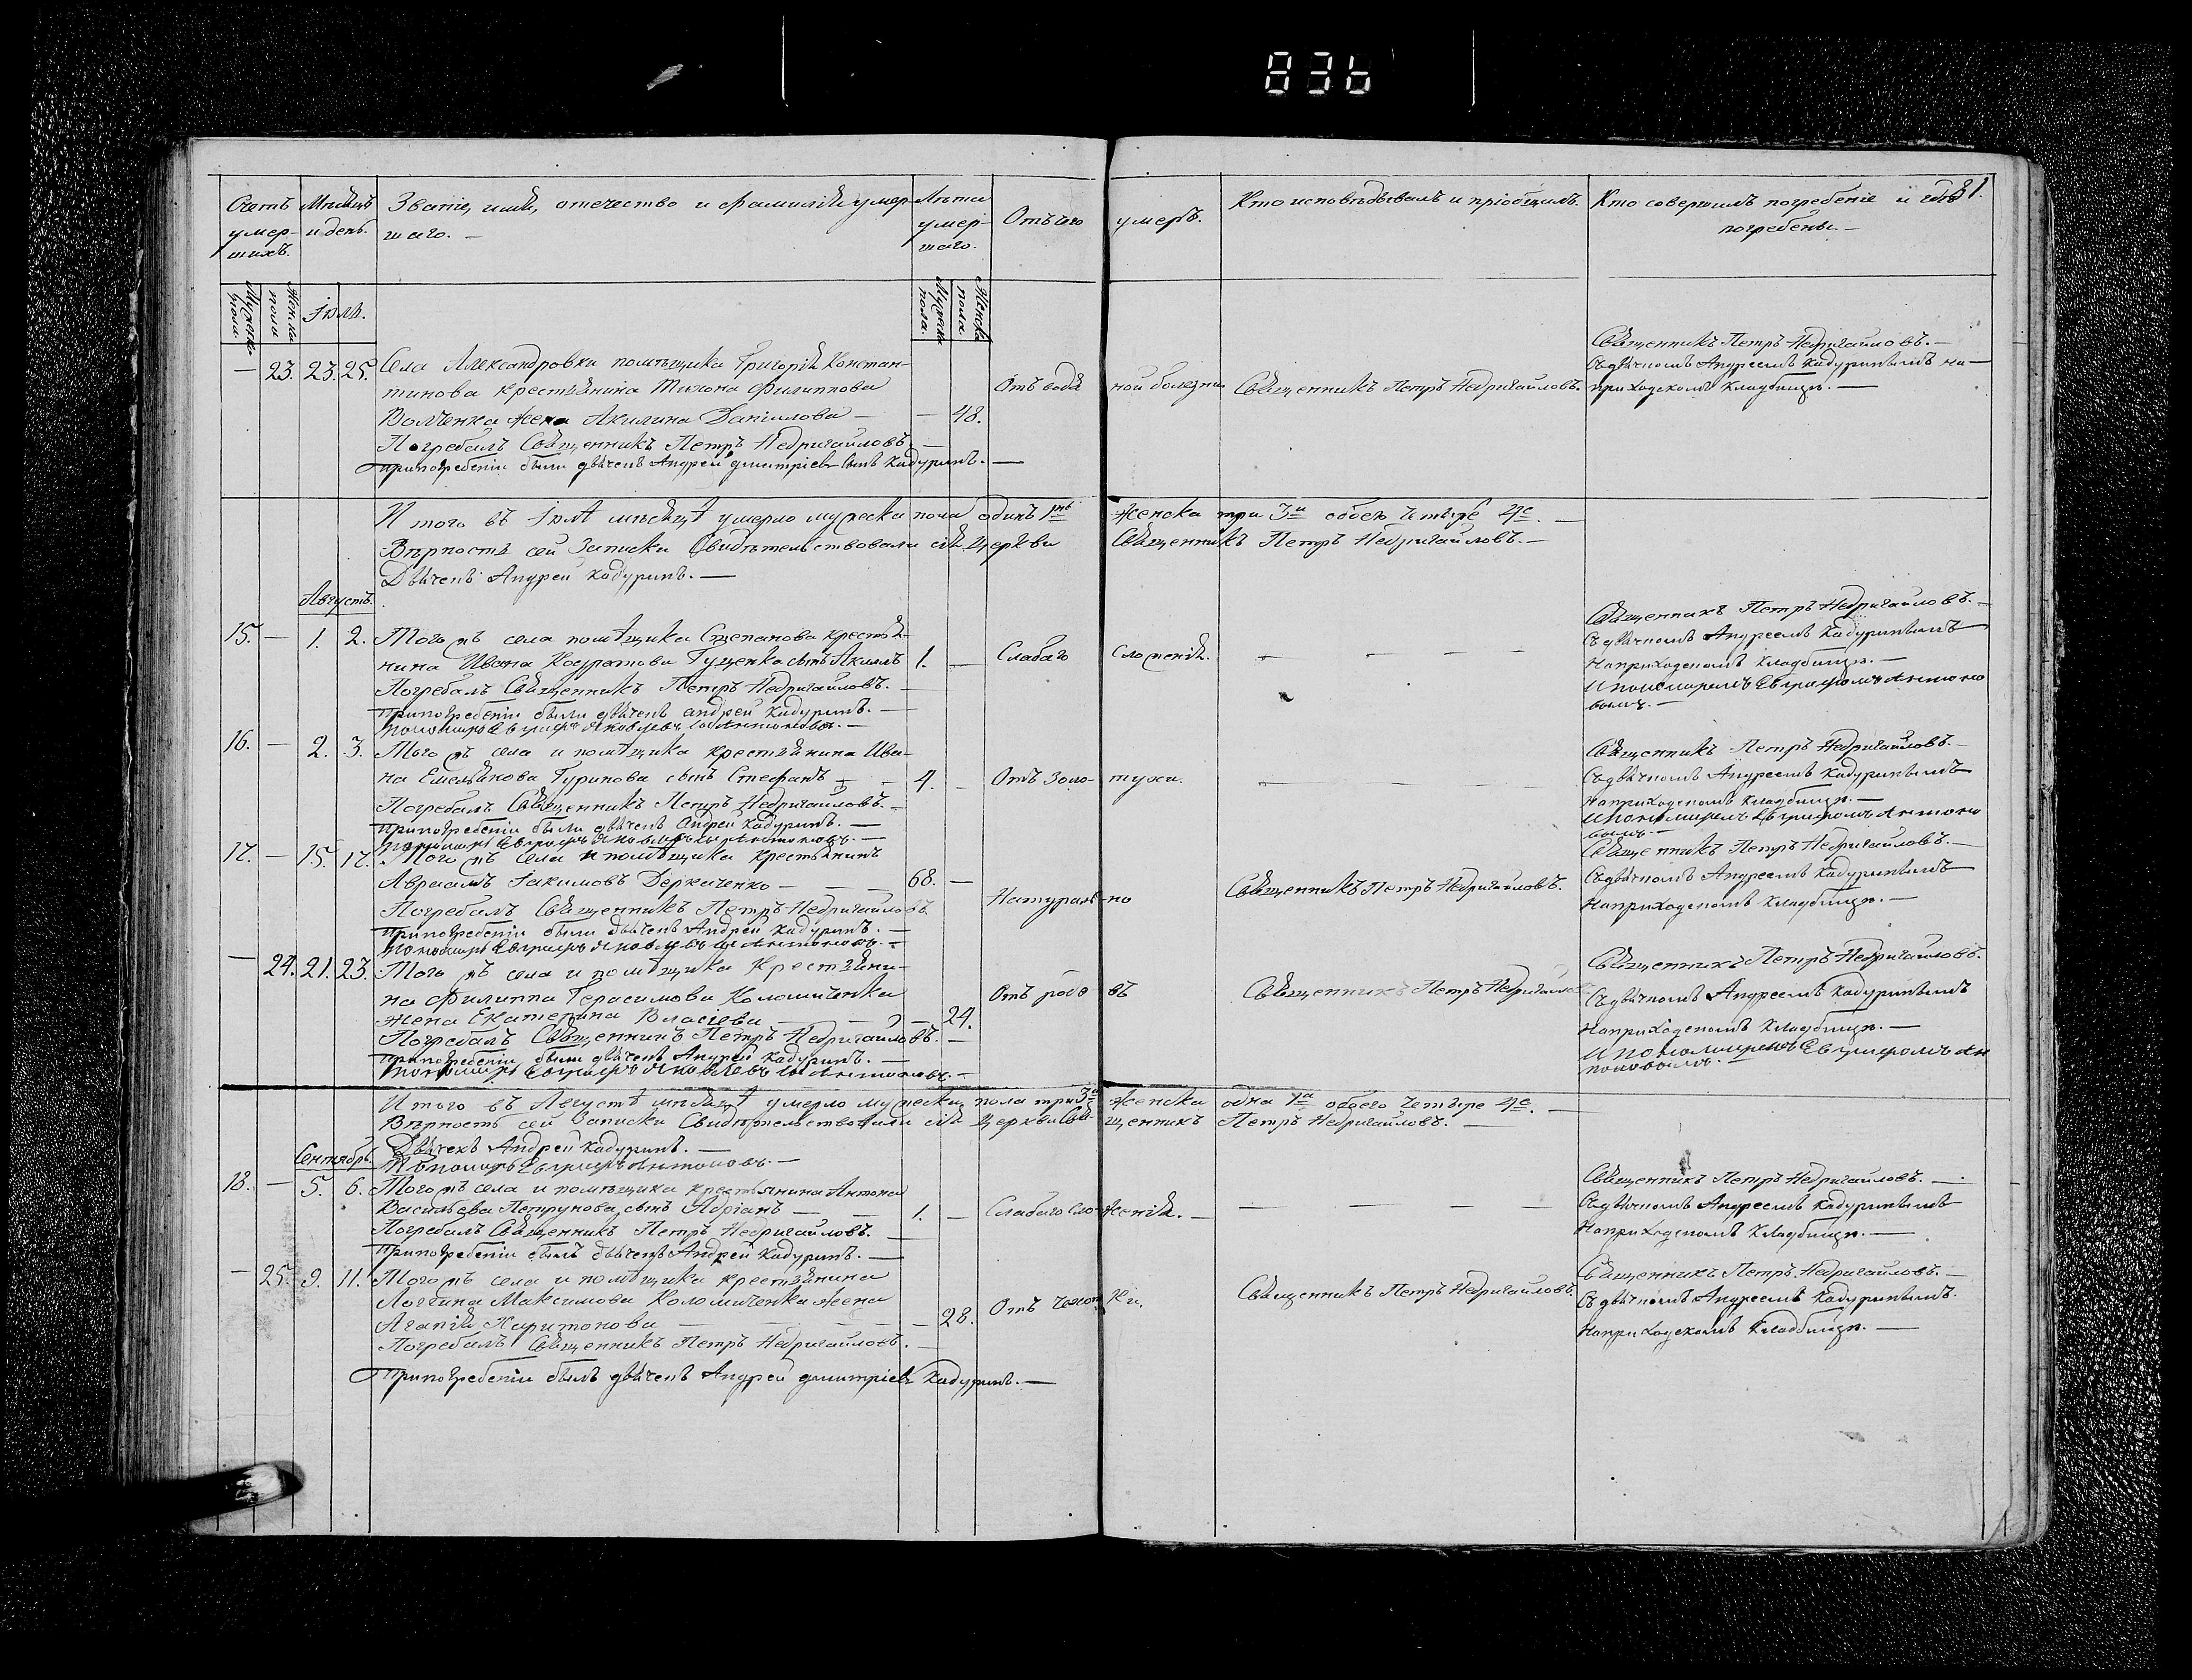 836
Счетъ умер-шихъ.
Мѣсяцъ и день.
Званіе, имя, отечество и фамилія умер-
шаго. —
Лѣта умер-шаго.
Отъ чего умеръ.
Кто исповѣдывалъ и пріобщилъ.
Кто совершилъ погребеніе и гдѣ
погребены. —
81.
Мужеска пола.
Женска пола
Іюля.
Мужеска пола.
Женска пола.
— 23. 23. 25. Села Александровки помѣщика Григорія Констан-
тинова крестьянина Тихона Филиппова
Волченка жена Акилина Даніилова — — 48.
Отъ водяной болезни
Священникъ Петръ Недригайловъ.
Священникъ Петръ Недригайловъ. —
Съ дьячкомъ Андреемъ Кадуринымъ на —
приходскомъ кладбищѣ. —
Погребалъ Священникъ Петръ Недригайловъ. —
При погребеніи были дьячекъ Андрей Дмитріевъ сынъ Кадуринъ. —
И того въ Іюлѣ мѣсяцѣ умерло мужеска пола одинъ женска три 3и обоего четыре 4е. —
Вѣрность сей записки свидѣтельствовали сія церкви Священникъ Петръ Недригайловъ. —
Дьячекъ Андрей Кадуринъ. —
Августъ.
15. — 1. 2. Того жъ села помѣщика Степанова крестья-
нина Ивана Кодратова Гуценка сынъ Акимъ 1. —
Слабаго сложенія.
Погребалъ Священникъ Петръ Недригайловъ. —
При погребеніи были дьячекъ Андрей Кадуринъ. —
Пономарь Евграфъ Яковлевъ сынъ Антоновъ. —
Священникъ Петръ Недригайловъ. —
Съ дьячкомъ Андреемъ Кадуринымъ
На приходскомъ кладбищѣ. —
И пономаремъ Евграфомъ Антоно
вымъ. —
16. — 2. 3. Того жъ села и помѣщика крестьянина Ива-
на Емельянова Гуринова сынъ Стефанъ — 4. —
Отъ золотухи.
Погребалъ Священникъ Петръ Недригайловъ. —
При погребеніи были дьячекъ Андрей Кадуринъ. —
Пономарь Евграфъ Яковлевъ сынъ Антоновъ. —
Священникъ Петръ Недригайловъ. —
Съ дьячкомъ Андреемъ Кадуринымъ
На приходскомъ кладбищѣ. —
И пономаремъ Евграфомъ Антоно
вымъ. —
17. — 15. 17. Того жъ села и помѣщика крестьянинъ
Авраамъ Іакимовъ Деркаченко — — 68. —
Натурально
Священникъ Петръ Недригайловъ.
Погребалъ Священникъ Петръ Недригайловъ
При погребеніи были дьячекъ Андрей Кадуринъ. —
Пономарь Евграфъ Яковлевъ сынъ Антоновъ. —
Священникъ Петръ Недригайловъ. —
Съ дьячкомъ Андреемъ Кадуринымъ
На приходскомъ кладбищѣ. —
— 24. 21. 23. Того жъ села и помѣщика крестьяни-
на Филиппа Герасимова Коломиченка
жена Екатерина Власіева — — 24.
Отъ родовъ
Священникъ Петръ Недригайловъ
Погребалъ Священникъ Петръ Недригайловъ. —
При погребеніи были дьячекъ Андрей Кадуринъ. —
Пономарь Евграфъ Яковлевъ сынъ Антоновъ. —
Священникъ Петръ Недригайловъ.
Съ дьячкомъ Андреемъ Кадуринымъ
На приходскомъ кладбищѣ. —
И пономаремъ Евграфомъ Ан
тоновымъ.
И того въ Августѣ мѣсяцѣ умерло мужеска пола три 3и женска одна 1а обоего четыре 4е. —
Вѣрность сей записки свидѣтельствовали сія церкви Священникъ Петръ Недригайловъ. —
Дьячекъ Андрей Кадуринъ. —
Пономарь Евграфъ Антоновъ. —
Сентябрь.
18. — 5. 6. Того жъ села и помѣщика крестьянина Антона
Васильева Петрунова сынъ Адріанъ — — 1. —
Слабаго сложенія. —
Погребалъ Священникъ Петръ Недригайловъ. —
При погребеніи былъ дьячекъ Андрей Кадуринъ. —
Священникъ Петръ Недригайловъ. —
Съ дьячкомъ Андреемъ Кадуринымъ
На приходскомъ кладбищѣ. —
— 25. 9. 11. Того жъ села и помѣщика крестьянина
Логгина Максимова Коломиченка жена
Агапія Харитонова — — 28.
Отъ чахотки.
Священникъ Петръ Недригайловъ.
Погребалъ Священникъ Петръ Недригайловъ. —
При погребеніи былъ дьячекъ Андрей Дмитріевъ Кадуринъ. —
Священникъ Петръ Недригайловъ. —
Съ дьячкомъ Андреемъ Кадуринымъ.
На приходскомъ кладбищѣ. —